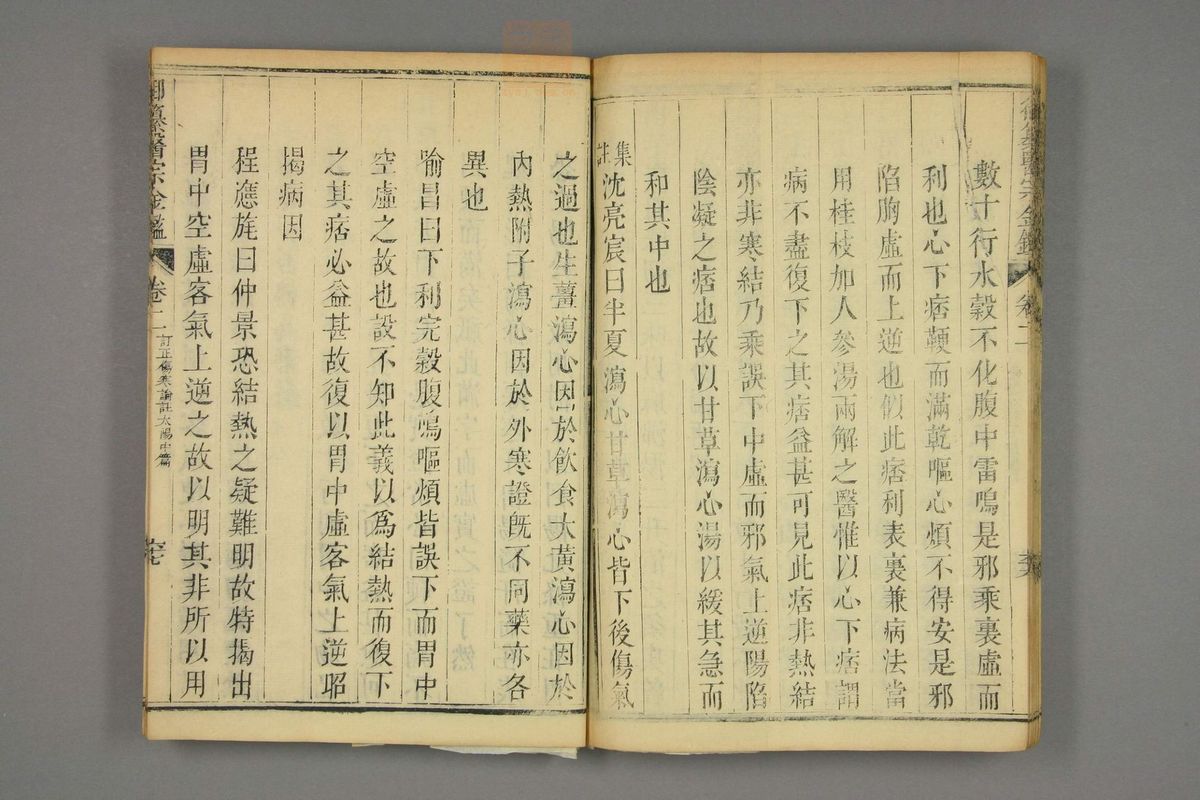 數十行水穀不化腹中雷鳴是邪乘裏虛而
利也心下痞鞕而滿乾嘔心煩不得安是邪
陷胸虛而上逆也似此痞利表裏兼病法當
用桂枝加人參湯兩解之醫惟以心下痞謂
病不盡復下之其痞益甚可見此痞非熱結
亦非寒結乃乘誤下中虛而邪氣上逆陽陷
陰凝之痞也故以甘草瀉心湯以緩其急而
和其中也
集註沈亮宸曰半夏瀉心甘草瀉心皆下後傷氣
之過也生薑瀉心因於飲食大黃瀉心因於
內熱附子瀉心因於外寒證既不同藥亦各
異也
喻昌曰下利完穀腹鳴嘔煩皆誤下而胃中
空虛之故也設不知此義以爲結熱而復下
之其痞必益甚故復以胃中虛客氣上逆昭
揭病因
程應旄曰仲景恐結熱之疑難明故特揭出
胃中空虛客氣上逆之故以明其非所以用
御纂醫宗金鑑 卷二 訂正傷寒論註太陽中篇